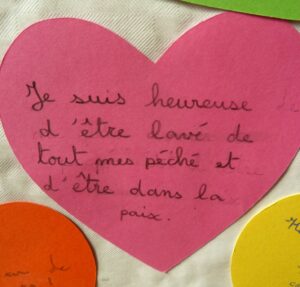 Je suis heureuse
d'être lavé de
tout mes péché et
d'être dans la
paix.